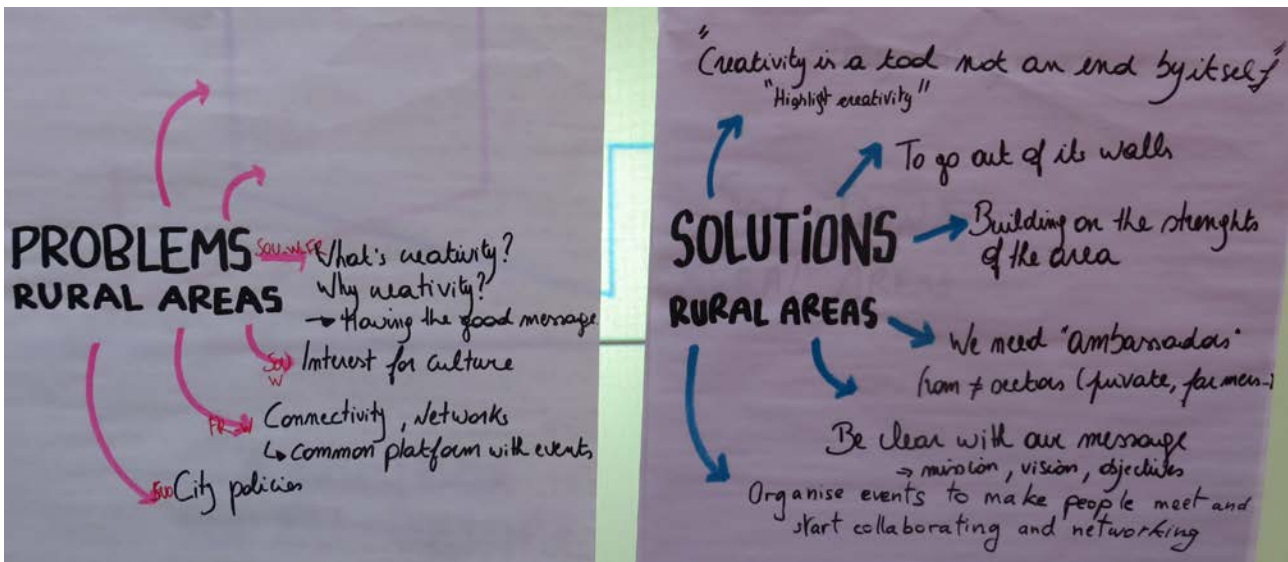 PROBLEMS
RURAL AREAS
SOU-W-FR What's creativity?
Why creativity?
→ Having the good message
SOU W Interest for culture
FR-W Connectivity, Networks
↳ Common platform with events
City policies
"Creativity is a tool not an end by itself"
"Highligt creativity"
To go out of its walls
SOLUTIONS
RURAL AREAS
Building on the strenghts
of the area
We need "ambassadors"
from ≠ sectors (private, farmers...)
Be clear with our message
→ mission, vision, objectives
Organise events to make people meet and
start collaborating and networking